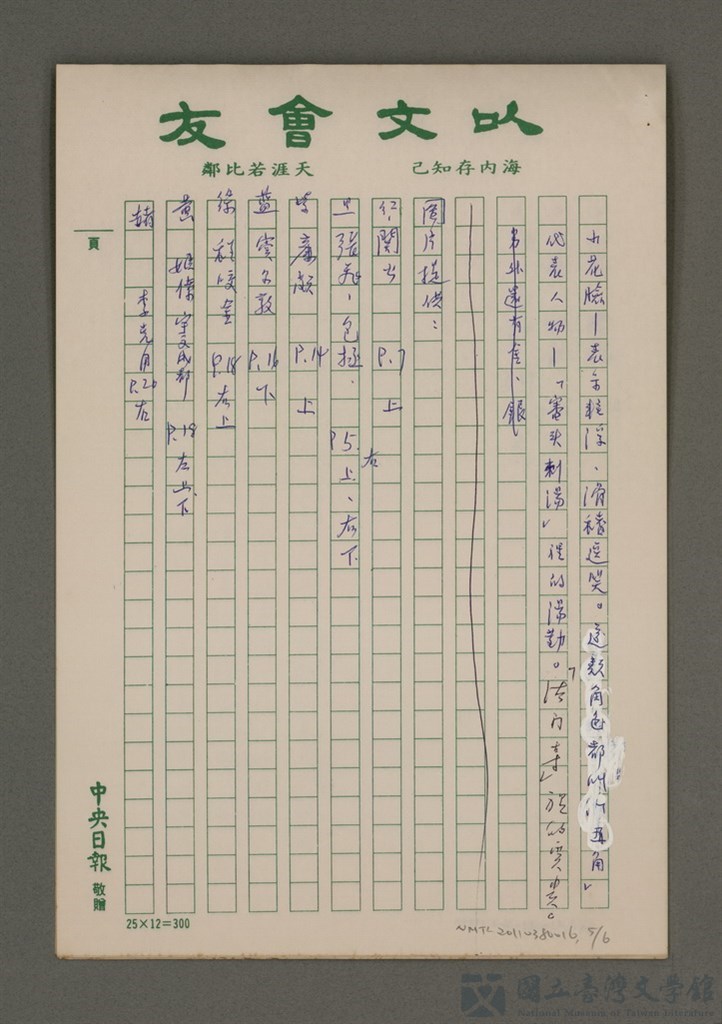 以文會友
海內存知己
天涯若比鄰
小花臉—表示輕浮、滑稽逗笑。這類角色都叫丑角,
代表人物—「審頭刺湯」裡的湯勤。「法門寺」裡的賈貴。
另外還有金、銀
圖片提供:
紅:關公 P.7 上
黑 張飛、包拯、 P5. 上、右下
右
廉頗 P.14 上
藍 竇爾敦 P.16 下
綠 P.18 右上
黃 姬僚 宇文成都 P.18 左上、下
赭 李克用 P.20 右
頁
中央日報 敬贈
25×12=300
NMTL20110380016, 5/6
國立臺灣文學館
National Museum of Taiwan Literature